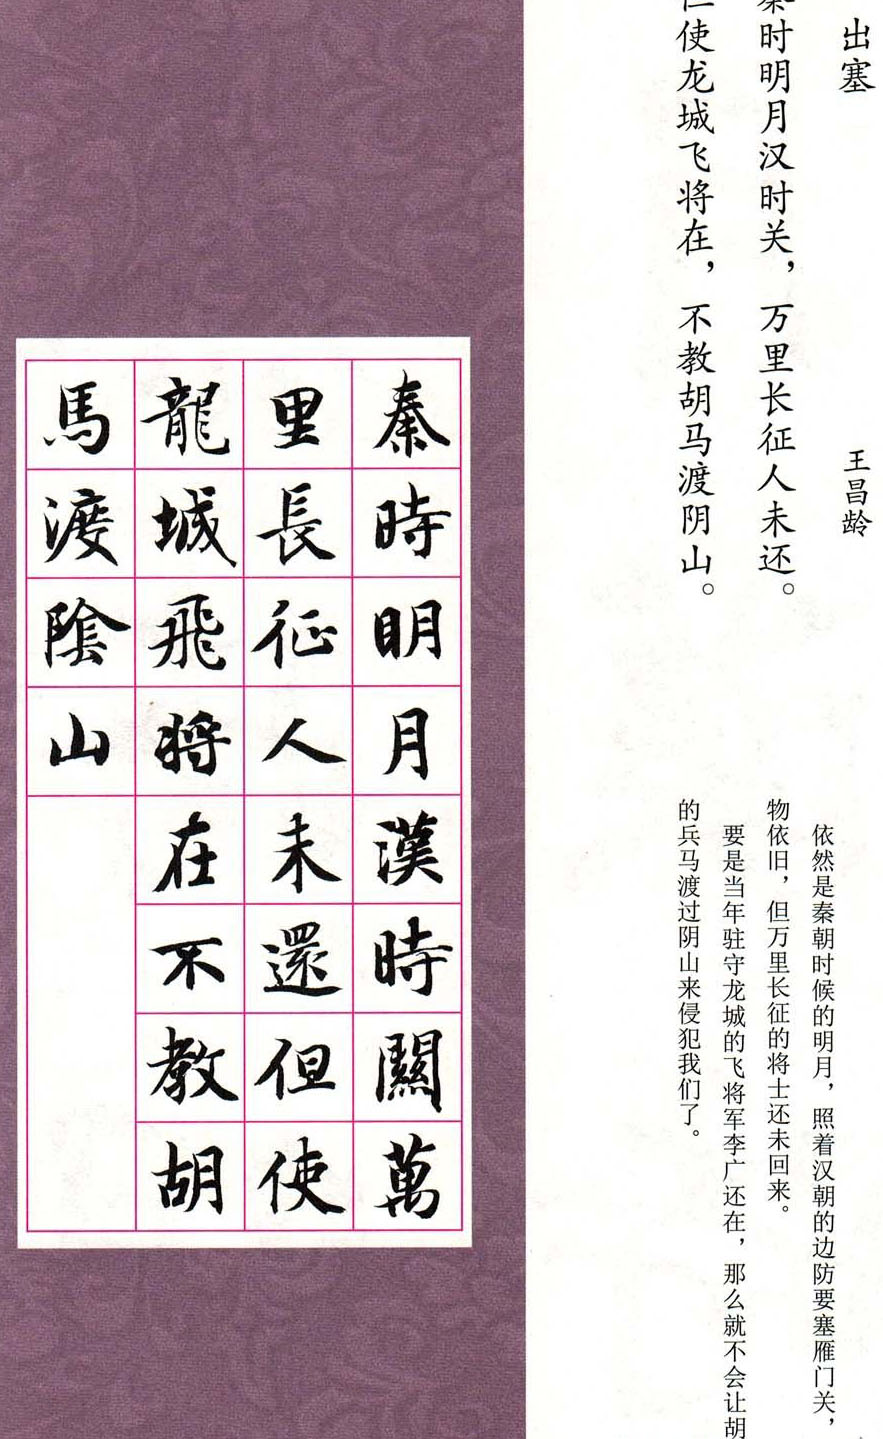 出塞
王昌龄
秦时明月汉时关，万里长征人未还。
但使龙城飞将在，不教胡马渡阴山。
依然是秦朝时候的明月，照着汉朝的边防要塞雁门关，
物依旧，但万里长征的将士还未回来。
要是当年驻守龙城的飞将军李广还在，那么就不会让胡
的兵马渡过阴山来侵犯我们了。
秦時明月漢時關萬
里長征人未還但使
龍城飛將在不教胡
馬渡陰山